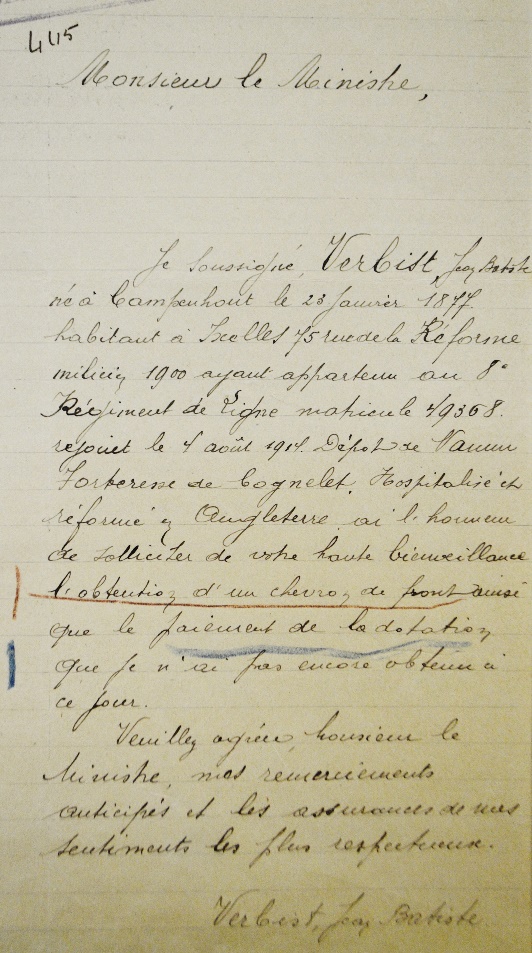 445
Monsieur le Ministre,
Je soussigné, Verbist, Jean Batiste
né à Campenhout le 23 janvier 1877
habitant à Ixelles 75 rue de la Réforme
milicien 1900 ayant appartenu au 8e
Régiment de Ligne matricule 49368.
rejoint le 4 août 1914. Dépot de Namur
Forteresse de Cognelet. Hospitalisé et
réformé en Angleterre, ai l'honneur
de solliciter de votre haute bienveillance
l'obtention d'un chevron de front ainsi
que le paiement de la dotation
que je n'ai pas encore obtenu à
ce jour.
Veuillez agréer, Monsieur le
Ministre, mes remerciements
anticipés et les assurances de mes
sentiments les plus respectueux.
Verbist, Jean Batiste